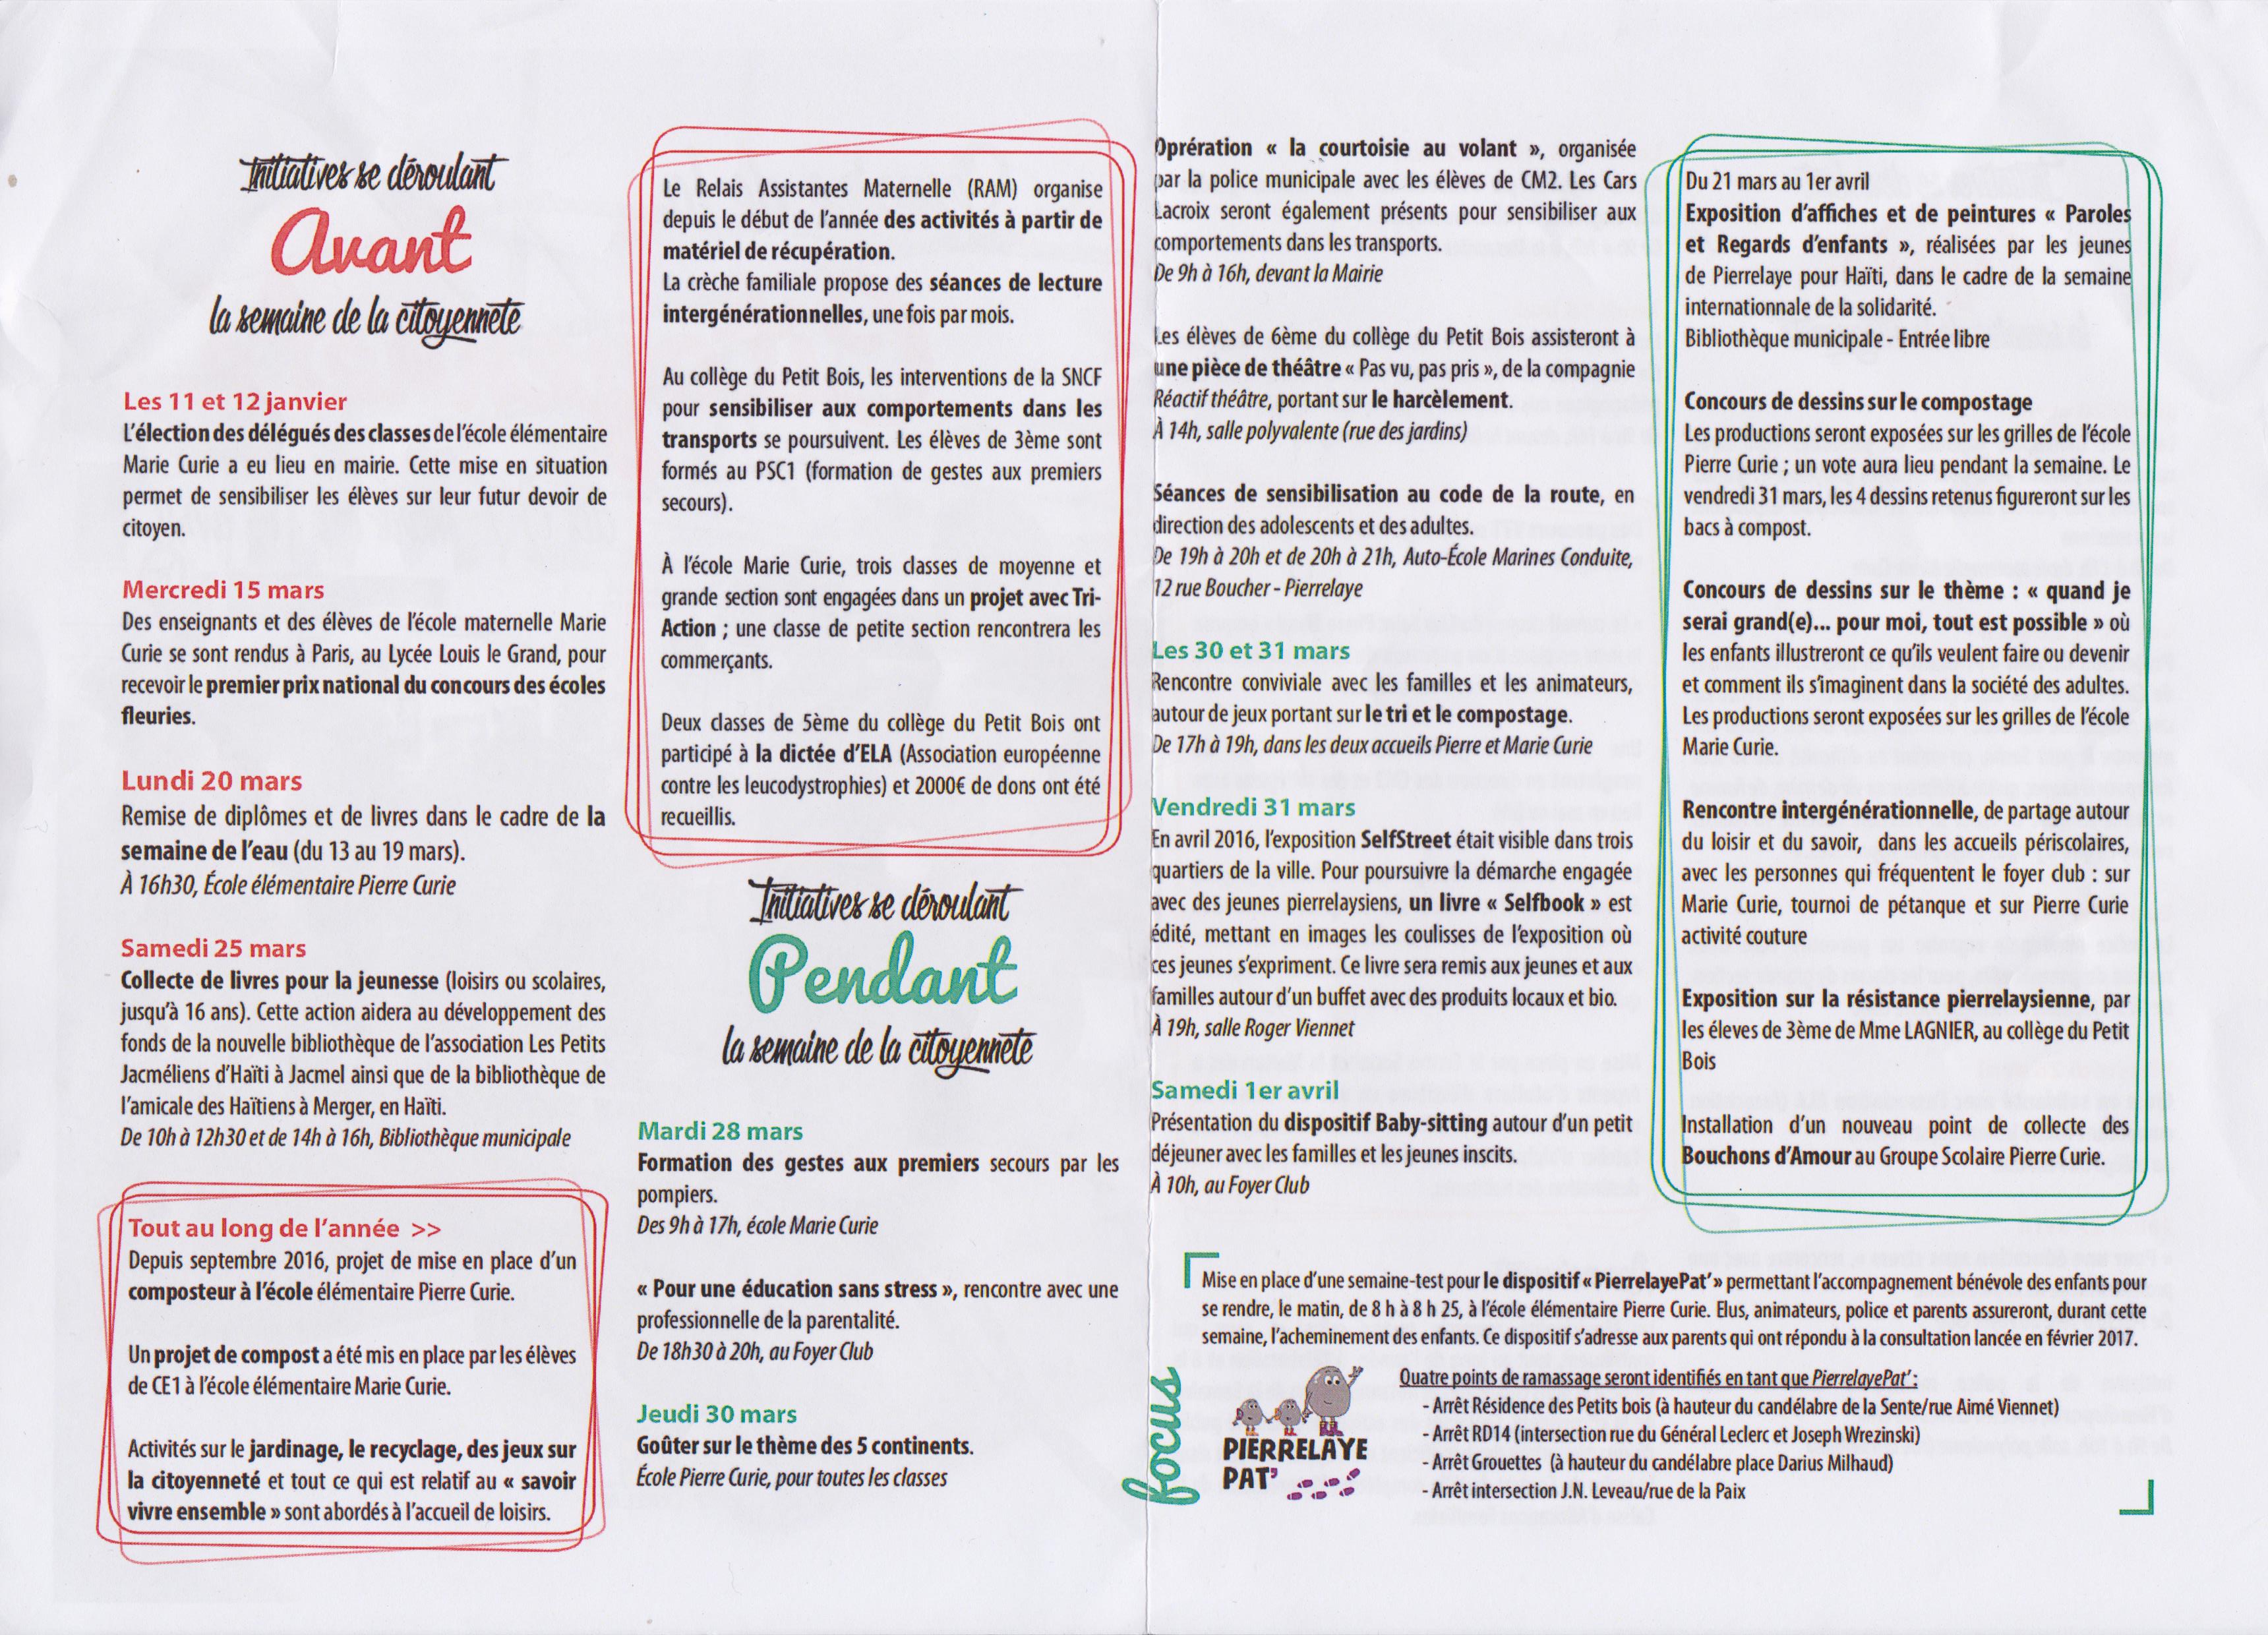 Initiatives se déroulant
Avant
la semaine de la citoyenneté
Les 11 et 12 janvier
L'élection des délégués des classes de l'école élémentaire
Marie Curie a eu lieu en mairie. Cette mise en situation
permet de sensibiliser les élèves sur leur futur devoir de
citoyen.
Mercredi 15 mars
Des enseignants et des élèves de l'école maternelle Marie
Curie se sont rendus à Paris, au Lycée Louis le Grand, pour
recevoir le premier prix national du concours des écoles
fleuries.
Lundi 20 mars
Remise de diplômes et de livres dans le cadre de la
semaine de l'eau (du 13 au 19 mars).
À 16h30, École élémentaire Pierre Curie
Samedi 25 mars
Collecte de livres pour la jeunesse (loisirs ou scolaires,
jusqu'à 16 ans). Cette action aidera au développement des
fonds de la nouvelle bibliothèque de l'association Les Petits
Jacméliens d'Haïti à Jacmel ainsi que de la bibliothèque de
l'amicale des Haïtiens à Merger, en Haïti.
De 10h à 12h30 et de 14h à 16h, Bibliothèque municipale
Tout au long de l'année >>
Depuis septembre 2016, projet de mise en place d'un
composteur à l'école élémentaire Pierre Curie.
Un projet de compost a été mis en place par les élèves
de CE1 à l'école élémentaire Marie Curie.
Activités sur le jardinage, le recyclage, des jeux sur
la citoyenneté et tout ce qui est relatif au « savoir
vivre ensemble » sont abordés à l'accueil de loisirs.
Le Relais Assistantes Maternelle (RAM) organise
depuis le début de l'année des activités à partir de
matériel de récupération.
La crèche familiale propose des séances de lecture
intergénérationnelles, une fois par mois.
Au collège du Petit Bois, les interventions de la SNCF
pour sensibiliser aux comportements dans les
transports se poursuivent. Les élèves de 3ème sont
formés au PSC1 (formation de gestes aux premiers
secours).
À l'école Marie Curie, trois classes de moyenne et
grande section sont engagées dans un projet avec Tri-
Action ; une classe de petite section rencontrera les
commerçants.
Deux classes de 5ème du collège du Petit Bois ont
participé à la dictée d'ELA (Association européenne
contre les leucodystrophies) et 2000€ de dons ont été
recueillis.
Initiatives se déroulant
Pendant
la semaine de la citoyenneté
Mardi 28 mars
Formation des gestes aux premiers secours par les
pompiers.
Des 9h à 17h, école Marie Curie
« Pour une éducation sans stress », rencontre avec une
professionnelle de la parentalité.
De 18h30 à 20h, au Foyer Club
Jeudi 30 mars
Goûter sur le thème des 5 continents.
École Pierre Curie, pour toutes les classes
Oprération « la courtoisie au volant », organisée
par la police municipale avec les élèves de CM2. Les Cars
Lacroix seront également présents pour sensibiliser aux
comportements dans les transports.
De 9h à 16h, devant la Mairie
Les élèves de 6ème du collège du Petit Bois assisteront à
une pièce de théâtre « Pas vu, pas pris », de la compagnie
Réactif théâtre, portant sur le harcèlement.
À 14h, salle polyvalente (rue des jardins)
Séances de sensibilisation au code de la route, en
direction des adolescents et des adultes.
De 19h à 20h et de 20h à 21h, Auto-École Marines Conduite,
12 rue Boucher - Pierrelaye
Les 30 et 31 mars
Rencontre conviviale avec les familles et les animateurs,
autour de jeux portant sur le tri et le compostage.
De 17h à 19h, dans les deux accueils Pierre et Marie Curie
Vendredi 31 mars
En avril 2016, l'exposition SelfStreet était visible dans trois
quartiers de la ville. Pour poursuivre la démarche engagée
avec des jeunes pierrelaysiens, un livre « Selfbook » est
édité, mettant en images les coulisses de l'exposition où
ces jeunes s'expriment. Ce livre sera remis aux jeunes et aux
familles autour d'un buffet avec des produits locaux et bio.
À 19h, salle Roger Viennet
Samedi 1er avril
Présentation du dispositif Baby-sitting autour d'un petit
déjeuner avec les familles et les jeunes inscits.
À 10h, au Foyer Club
Du 21 mars au 1er avril
Exposition d'affiches et de peintures « Paroles
et Regards d'enfants », réalisées par les jeunes
de Pierrelaye pour Haïti, dans le cadre de la semaine
internationnale de la solidarité.
Bibliothèque municipale - Entrée libre
Concours de dessins sur le compostage
Les productions seront exposées sur les grilles de l'école
Pierre Curie ; un vote aura lieu pendant la semaine. Le
vendredi 31 mars, les 4 dessins retenus figureront sur les
bacs à compost.
Concours de dessins sur le thème : « quand je
serai grand(e)... pour moi, tout est possible » où
les enfants illustreront ce qu'ils veulent faire ou devenir
et comment ils s'imaginent dans la société des adultes.
Les productions seront exposées sur les grilles de l'école
Marie Curie.
Rencontre intergénérationnelle, de partage autour
du loisir et du savoir, dans les accueils périscolaires,
avec les personnes qui fréquentent le foyer club : sur
Marie Curie, tournoi de pétanque et sur Pierre Curie
activité couture
Exposition sur la résistance pierrelaysienne, par
les éleves de 3ème de Mme LAGNIER, au collège du Petit
Bois
Installation d'un nouveau point de collecte des
Bouchons d'Amour au Groupe Scolaire Pierre Curie.
Mise en place d'une semaine-test pour le dispositif « PierrelayePat' » permettant l'accompagnement bénévole des enfants pour
se rendre, le matin, de 8 h à 8 h 25, à l'école élémentaire Pierre Curie. Elus, animateurs, police et parents assureront, durant cette
semaine, l'acheminement des enfants. Ce dispositif s'adresse aux parents qui ont répondu à la consultation lancée en février 2017.
focus
PIERRELAYE
PAT'
Quatre points de ramassage seront identifiés en tant que PierrelayePat' :
- Arrêt Résidence des Petits bois (à hauteur du candélabre de la Sente/rue Aimé Viennet)
- Arrêt RD14 (intersection rue du Général Leclerc et Joseph Wrezinski)
- Arrêt Grouettes (à hauteur du candélabre place Darius Milhaud)
- Arrêt intersection J.N. Leveau/rue de la Paix